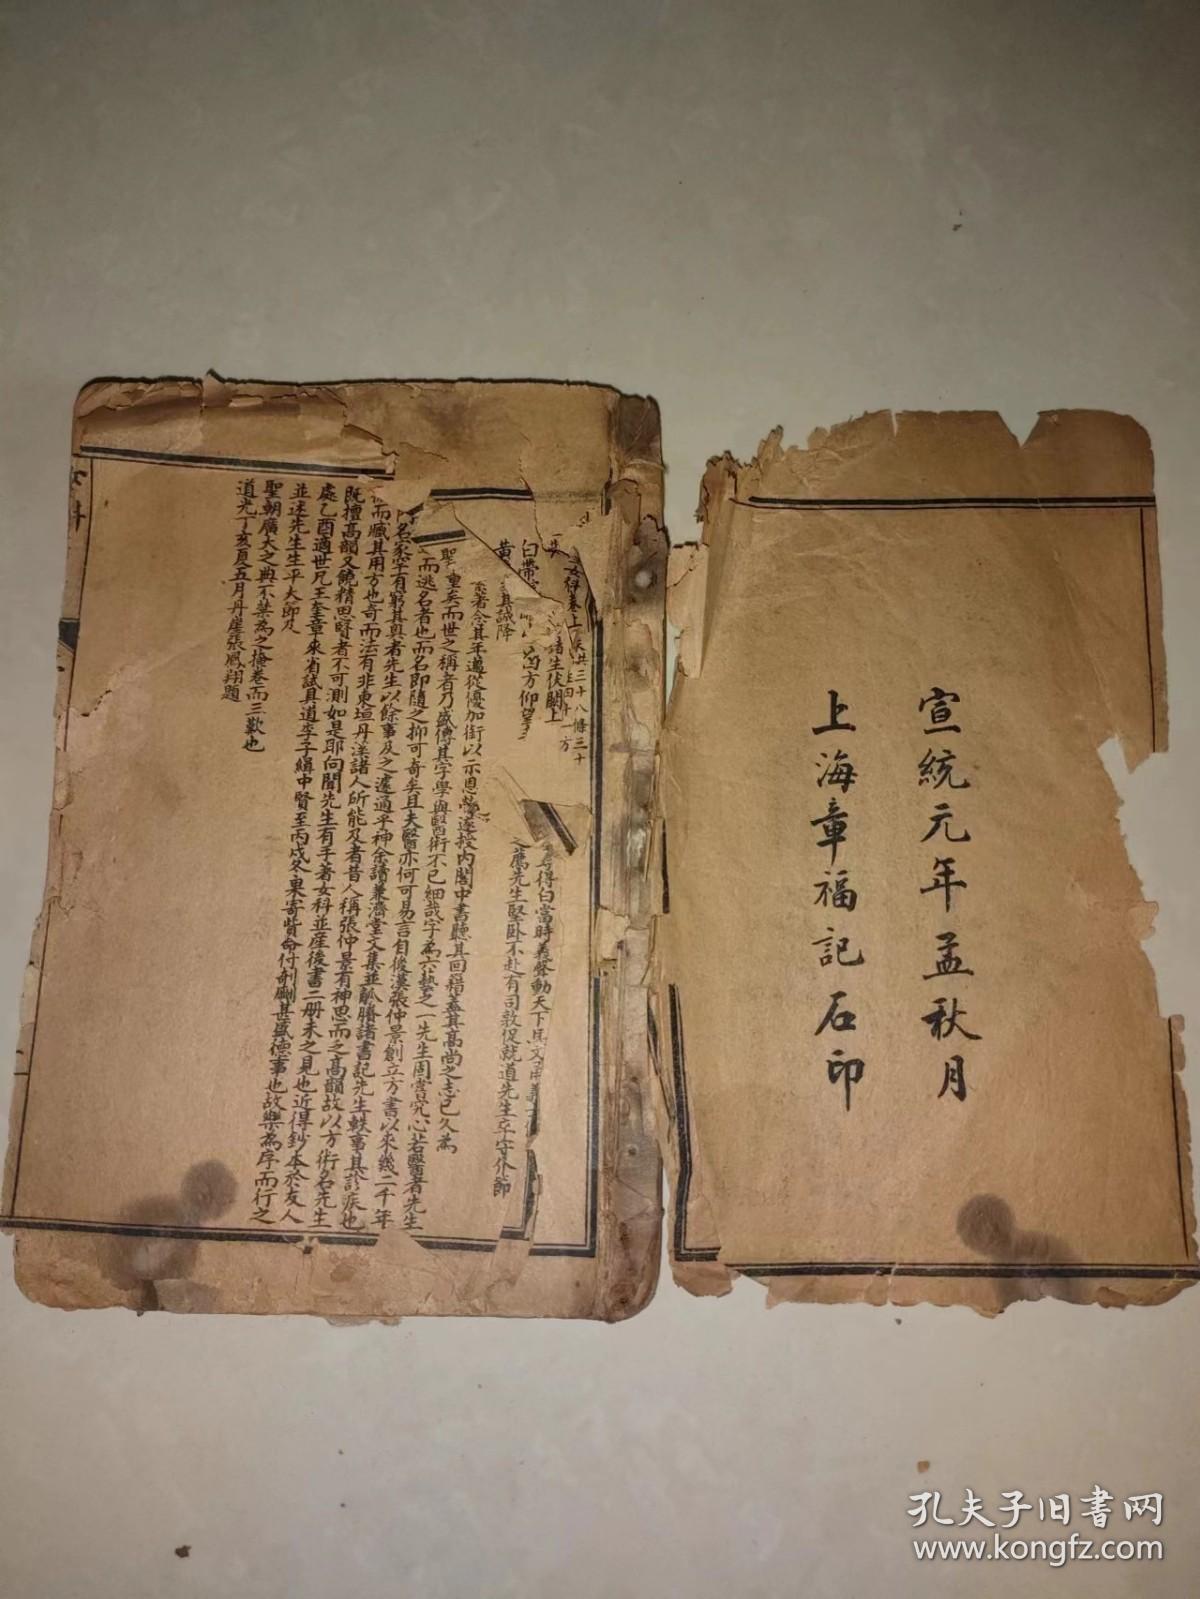 宣統元年孟秋月
上海章福記石印
女科卷上
共三十八條三十
四十一方
白帶
黃
諸生伏闕上
得白當時義聲動天下馬文
之薦先生堅卧不赴有司敦促就道先生
其誠降
方仰望
念其年邁從優加銜以示恩榮遂授内閣中書聽其回籍蓋其高尚之志已久為
聖
重矣而世之稱者乃盛傳其字學與醫術不已細哉字為六藝之一先生固嘗究心若醫者先生
而逃名者也而名即隨之抑可奇矣且夫醫亦何可易言自後漢張仲景創立方書以來幾二千年
名家罕有窮其奥者先生以餘事及之遽通乎神余讀兼濟堂文集並觚賸諸書記先生軼事其診疾也
而臧其用方也奇而法有非東垣丹溪諸人所能及者昔人稱張仲景有神思而乏高韻故以方術名先生
既擅高韻又饒精思賢者不可測如是耶向聞先生有手著女科並産後書二册未之見也近得鈔本於友人
處乙酉適世兄王奎章來省試具道李子緝中賢至丙戌冬果寄貲命付剞劂甚盛德事也故樂為序而行之
並述先生生平大節及
聖朝廣大之典不禁為之掩卷而三歎也
道光丁亥夏五月丹崖張鳳翔題
女科
孔夫子旧书网
www.kongfz.com